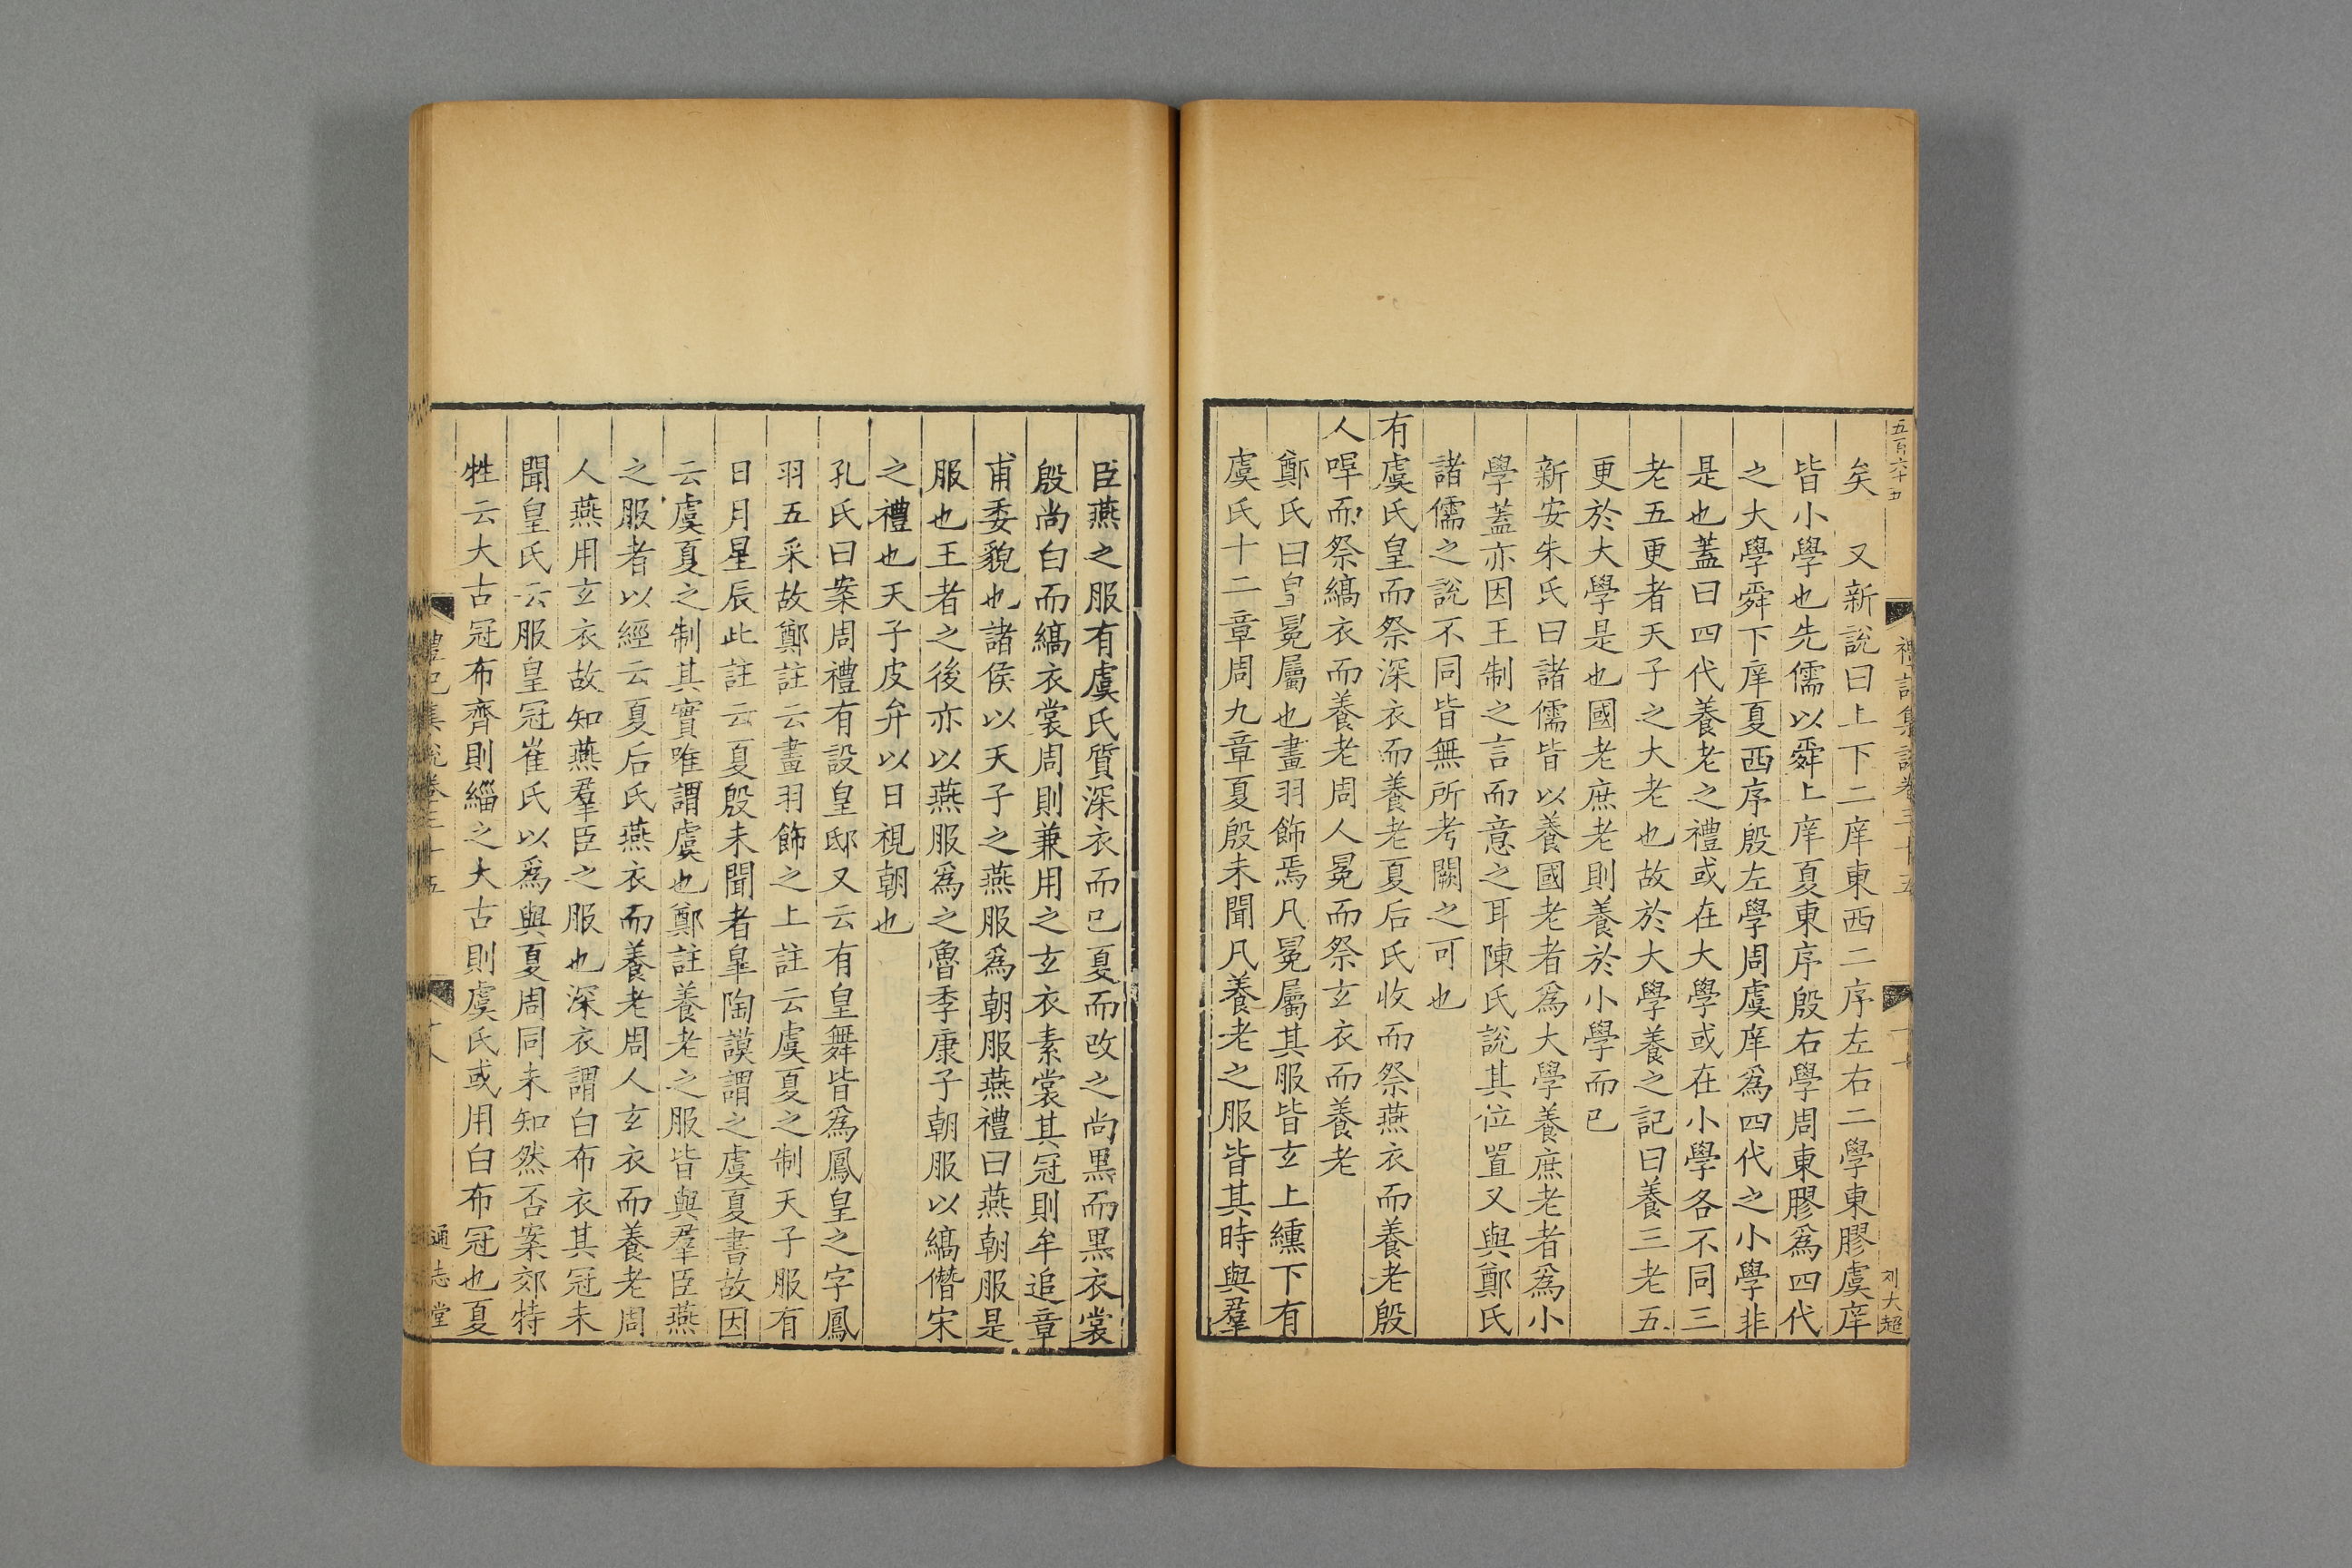 五百六十五
禮記集說卷三十五
十七
刘大超
矣　又新說曰上下二庠東西二序左右二學東膠虞庠
皆小學也先儒以舜上庠夏東序殷右學周東膠爲四代
之大學舜下庠夏西序殷左學周虞庠爲四代之小學非
是也蓋曰四代養老之禮或在大學或在小學各不同三
老五更者天子之大老也故於大學養之記曰養三老五
更於大學是也國老庶老則養於小學而已
新安朱氏曰諸儒皆以養國老者爲大學養庶老者爲小
學蓋亦因王制之言而意之耳陳氏說其位置又與鄭氏
諸儒之說不同皆無所考闕之可也
有虞氏皇而祭深衣而養老夏后氏收而祭燕衣而養老殷
人冔而祭縞衣而養老周人冕而祭玄衣而養老
鄭氏曰皇冕屬也畫羽飾焉凡冕屬其服皆玄上纁下有
虞氏十二章周九章夏殷未聞凡養老之服皆其時與羣
臣燕之服有虞氏質深衣而已夏而改之尚黑而黑衣裳
殷尚白而縞衣裳周則兼用之玄衣素裳其冠則牟追章
甫委貌也諸侯以天子之燕服爲朝服燕禮曰燕朝服是
服也王者之後亦以燕服爲之魯季康子朝服以縞僭宋
之禮也天子皮弁以日視朝也
孔氏曰案周禮有設皇邸又云有皇舞皆爲鳳皇之字鳳
羽五采故鄭註云畫羽飾之上註云虞夏之制天子服有
日月星辰此註云夏殷未聞者皐陶謨謂之虞夏書故因
云虞夏之制其實唯謂虞也鄭註養老之服皆與羣臣燕
之服者以經云夏后氏燕衣而養老周人玄衣而養老周
人燕用玄衣故知燕羣臣之服也深衣謂白布衣其冠未
聞皇氏云服皇冠崔氏以爲與夏周同未知然否案郊特
牲云大古冠布齊則緇之大古則虞氏或用白布冠也夏
禮記集說卷三十五
十八
通志堂